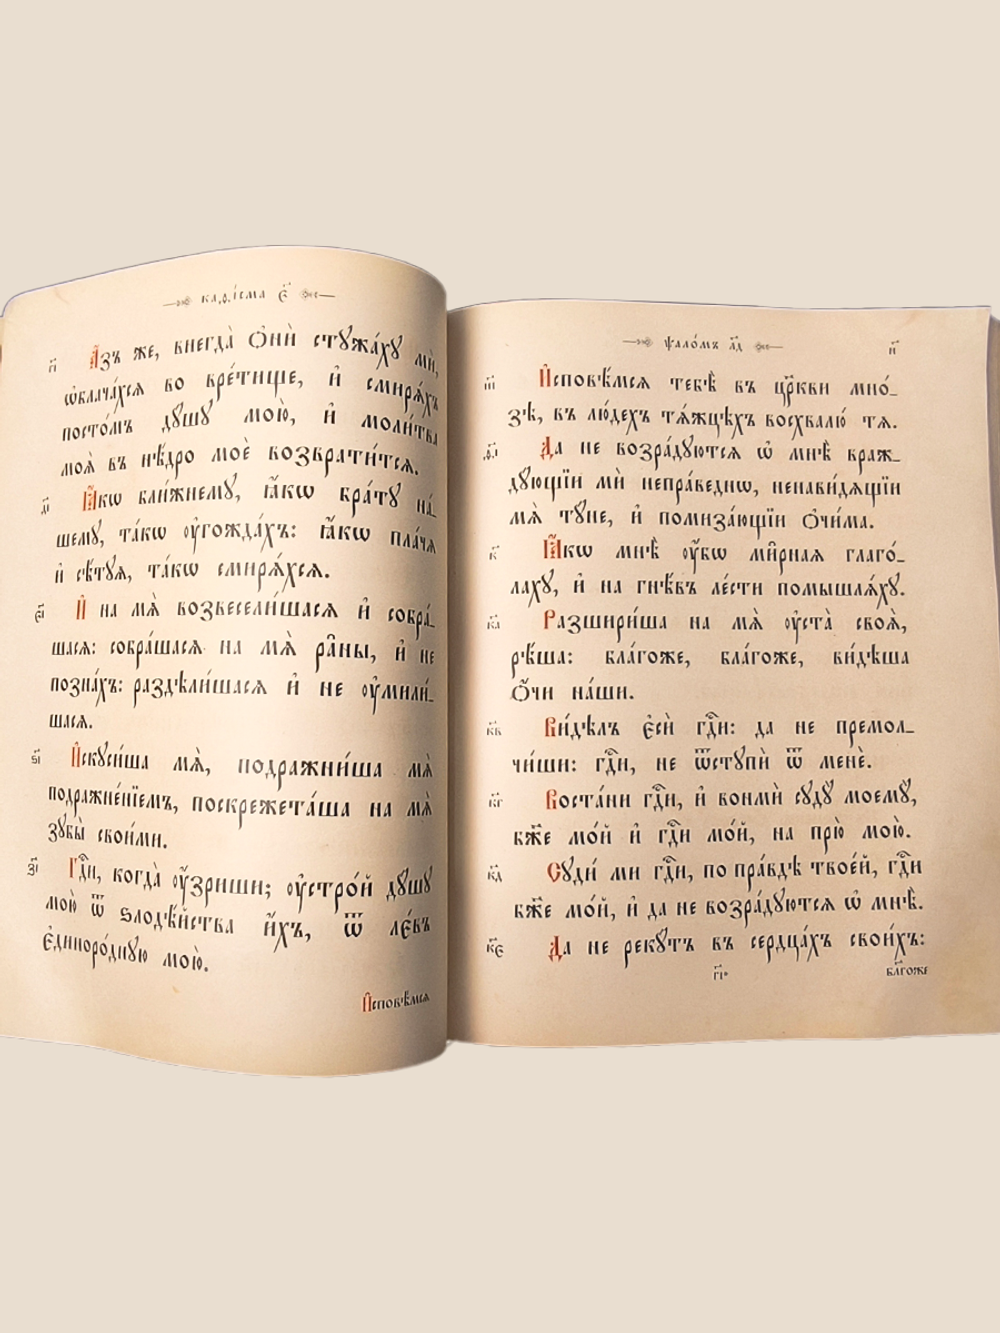 каѳі́сма є҃
гі А҆́зъ же, внегда̀ ѻ҆нѝ стꙋжа́хꙋ мѝ,
ѡ҆блача́хсѧ во вре́тище, и҆ смирѧ́хъ
посто́мъ дꙋ́шꙋ мою̀, и҆ моли́тва
моѧ̀ въ нѣ́дро моѐ возврати́тсѧ.
д҃і Ꙗ҆́кѡ бли́жнемꙋ, ꙗ҆́кѡ бра́тꙋ на́-
шемꙋ, та́кѡ ᲂу҆гожда́хъ: ꙗ҆́кѡ пла́чѧ
и҆ сѣ́тꙋѧ, та́кѡ смирѧ́хсѧ.
є҃і И҆ на мѧ̀ возвесели́шасѧ и҆ собра́-
шасѧ: собра́шасѧ на мѧ̀ ра̑ны, и҆ не
позна́хъ: раздѣли́шасѧ и҆ не ᲂу҆мили́-
шасѧ.
ѕ҃і И҆скꙋси́ша мѧ̀, подражни́ша мѧ̀
подражне́нїемъ, поскрежета́ша на мѧ̀
зꙋбы̀ свои́ми.
з҃і Гдⷭ҇и, когда̀ ᲂу҆́зриши; ᲂу҆стро́й дꙋ́шꙋ
мою̀ ѿ ѕлодѣ́йства и҆́хъ, ѿ ле́въ
є҆диноро́днꙋю мою̀.
И҆сповѣ́мсѧ
ѱало́мъ л҃д
и҃
и҃і И҆сповѣ́мсѧ тебѣ̀ въ цр҃кви мно́-
зѣ, въ лю́дехъ тѧ́жцѣхъ восхвалю́ тѧ.
ѳ҃і Да не возра́дꙋютсѧ ѡ҆ мнѣ̀ враж-
дꙋ́ющїи мѝ непра́веднѡ, ненави́дѧщїи
мѧ̀ тꙋ́не, и҆ помиза́ющїи ѻ҆чи́ма.
к҃ Ꙗ҆́кѡ мнѣ̀ ᲂу҆́бѡ ми̑рнаѧ глаго́-
лахꙋ, и҆ на гнѣ́въ ле́сти помышлѧ́хꙋ.
к҃а Разшири́ша на мѧ̀ ᲂу҆ста̀ своѧ̀,
рѣ́ша: бла́гоже, бла́гоже, ви́дѣша
ѻ҆́чи на́ши.
к҃в Ви́дѣлъ є҆сѝ гдⷭ҇и: да не премол-
чи́ши: гдⷭ҇и, не ѿстꙋпѝ ѿ менѐ.
к҃г Воста́ни гдⷭ҇и, и҆ вонмѝ сꙋдꙋ̀ моемꙋ̀,
бж҃е мо́й и҆ гдⷭ҇и мо́й, на прю̀ мою̀.
к҃д Сꙋди́ ми гдⷭ҇и, по пра́вдѣ твое́й, гдⷭ҇и
бж҃е мо́й, и҆ да не возра́дꙋютсѧ ѡ҆ мнѣ̀.
к҃є Да не рекꙋ́тъ въ сердца́хъ свои́хъ:
г҃і*
бла́гоже